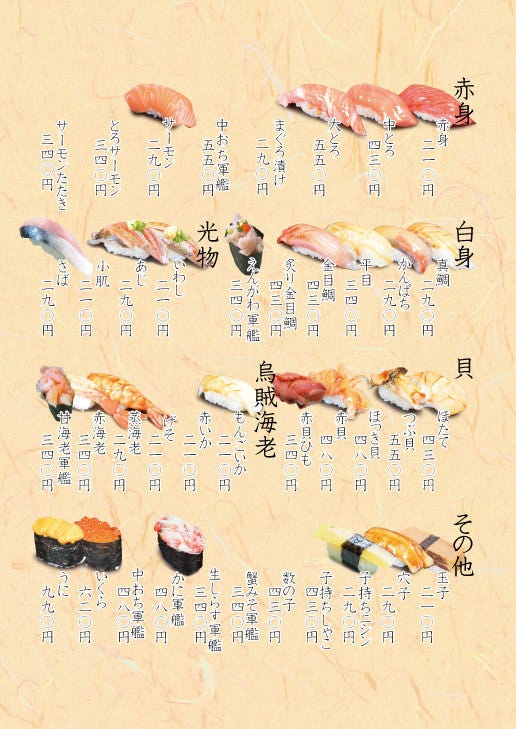 赤身
赤身
二一〇円
中とろ
四三〇円
大とろ
五五〇円
まぐろ漬け
二九〇円
中おち軍艦
五五〇円
サーモン
二九〇円
とろサーモン
三四〇円
サーモンたたき
三四〇円
白身
真鯛
二九〇円
かんぱち
二九〇円
平目
三四〇円
金目鯛
四三〇円
炙り金目鯛
四三〇円
えんがわ軍艦
三四〇円
光物
いわし
二一〇円
あじ
二九〇円
小肌
二一〇円
さば
二九〇円
貝
ほたて
四三〇円
つぶ貝
五五〇円
ほっき貝
四八〇円
赤貝
四八〇円
赤貝ひも
三四〇円
烏賊海老
もんごいか
二一〇円
赤いか
二一〇円
げそ
二一〇円
蒸海老
二九〇円
赤海老
三四〇円
甘海老軍艦
三四〇円
その他
玉子
二一〇円
穴子
二九〇円
子持ちニシン
二九〇円
子持ちしゃこ
四三〇円
数の子
四三〇円
蟹みそ軍艦
三四〇円
生しらす軍艦
三四〇円
かに軍艦
四八〇円
中おち軍艦
四八〇円
いくら
六二〇円
うに
九九〇円